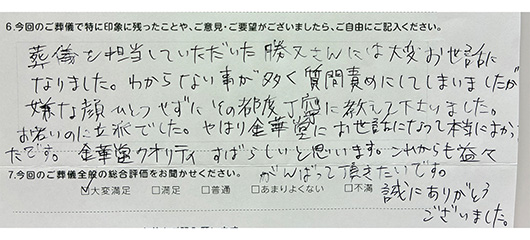 6.今回のご葬儀で特に印象に残ったことや、ご意見・ご要望がございましたら、ご自由にご記入ください。
葬儀を担当していただいた勝又さんには大変お世話に
なりました。わからない事が多く質問責めにしてしまいましたが
嫌な顔ひとつせずにその都度丁寧に教えて下さいました。
お若いのに立派でした。やはり金華堂にお世話になって本当によかっ
たです。金華堂クオリティすばらしいと思います。これからも益々
がんばって頂きたいです。
7.今回のご葬儀全般の総合評価をお聞かせください。
☑大変満足 □満足 □普通 □あまりよくない □不満
誠にありがとう
ございました。